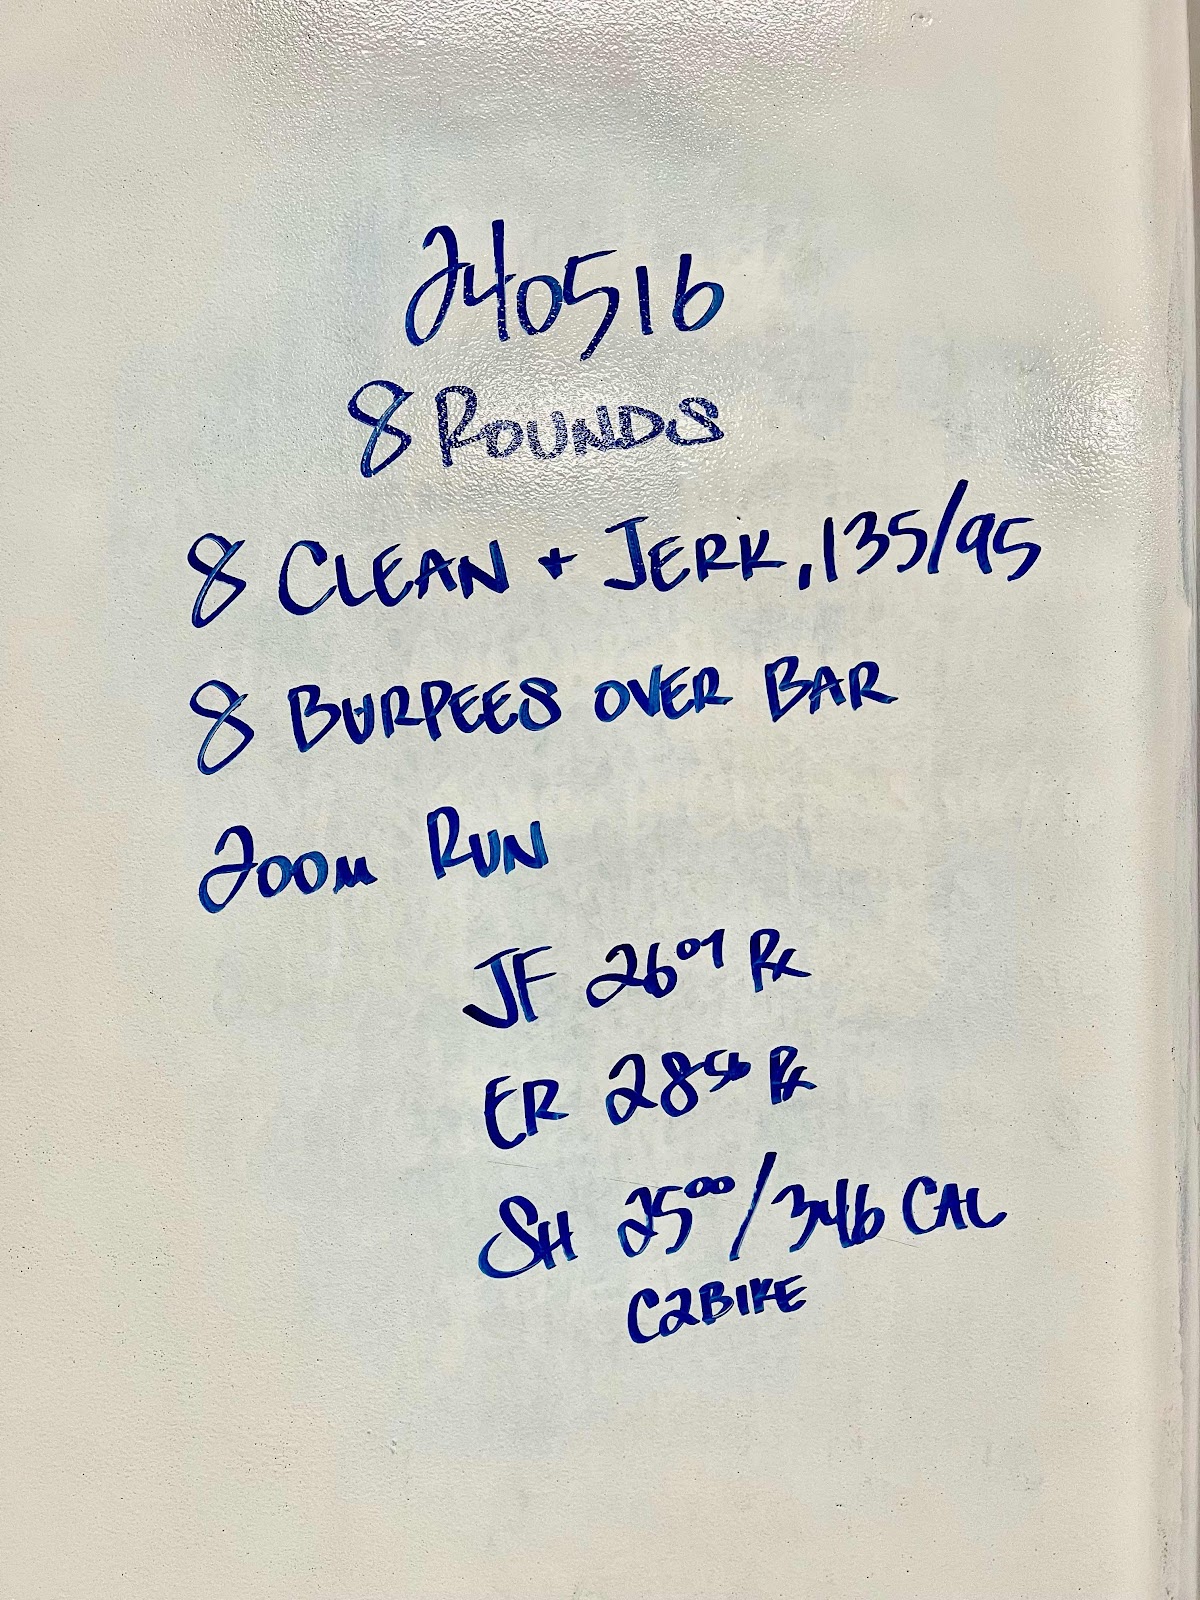 240516
8 ROUNDS
8 CLEAN + JERK, 135/95
8 BURPEES OVER BAR
200M RUN
JF 26⁰⁷ Rx
ER 28⁵⁶ Rx
SH 25⁰⁰/346 CAL
C2BIKE